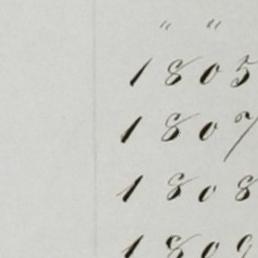 " "
1805
1807
1808
1809